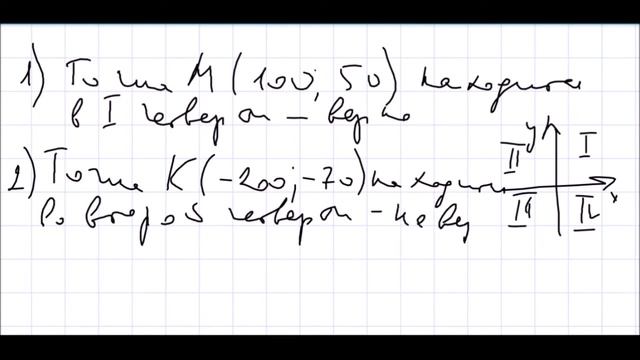 1) Точка М (100; 50) находится
в I четверти – верно
2) Точка К (-200; -70) находится
во второй четверти – неве
y
II I
x
III IV